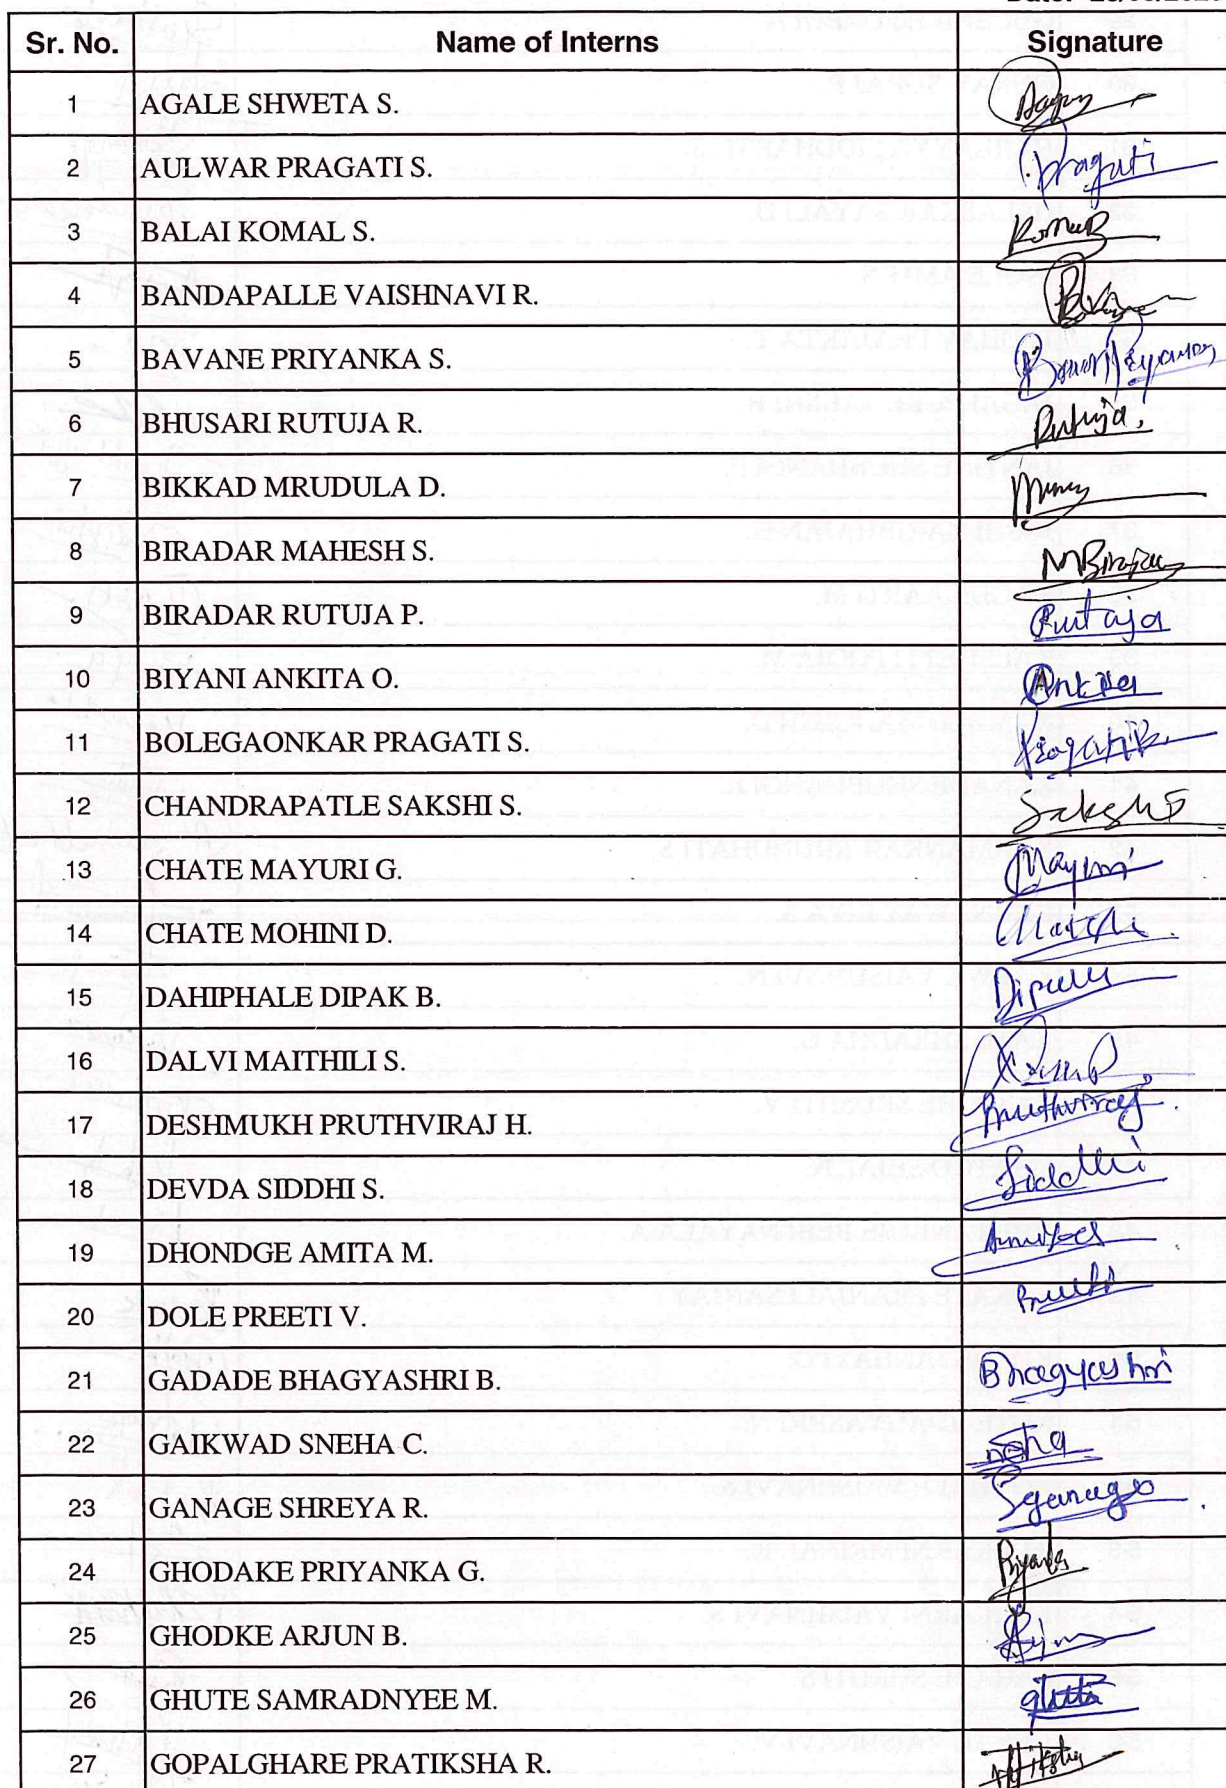 Sr. No. Name of Interns Signature
1 AGALE SHWETA S.
2 AULWAR PRAGATI S. Pragati
3 BALAI KOMAL S.
4 BANDAPALLE VAISHNAVI R.
5 BAVANE PRIYANKA S.
6 BHUSARI RUTUJA R. Rutuja.
7 BIKKAD MRUDULA D.
8 BIRADAR MAHESH S.
9 BIRADAR RUTUJA P. Rutuja
10 BIYANI ANKITA O. Ankita
11 BOLEGAONKAR PRAGATI S.
12 CHANDRAPATLE SAKSHI S. Sakshi
13 CHATE MAYURI G. Mayuri
14 CHATE MOHINI D.
15 DAHIPHALE DIPAK B.
16 DALVI MAITHILI S.
17 DESHMUKH PRUTHVIRAJ H. Pruthviraj.
18 DEVDA SIDDHI S. Siddhi
19 DHONDGE AMITA M.
20 DOLE PREETI V.
21 GADADE BHAGYASHRI B. Bhagyashri
22 GAIKWAD SNEHA C.
23 GANAGE SHREYA R. Sganage
24 GHODAKE PRIYANKA G. Priyanka
25 GHODKE ARJUN B.
26 GHUTE SAMRADNYEE M.
27 GOPALGHARE PRATIKSHA R.